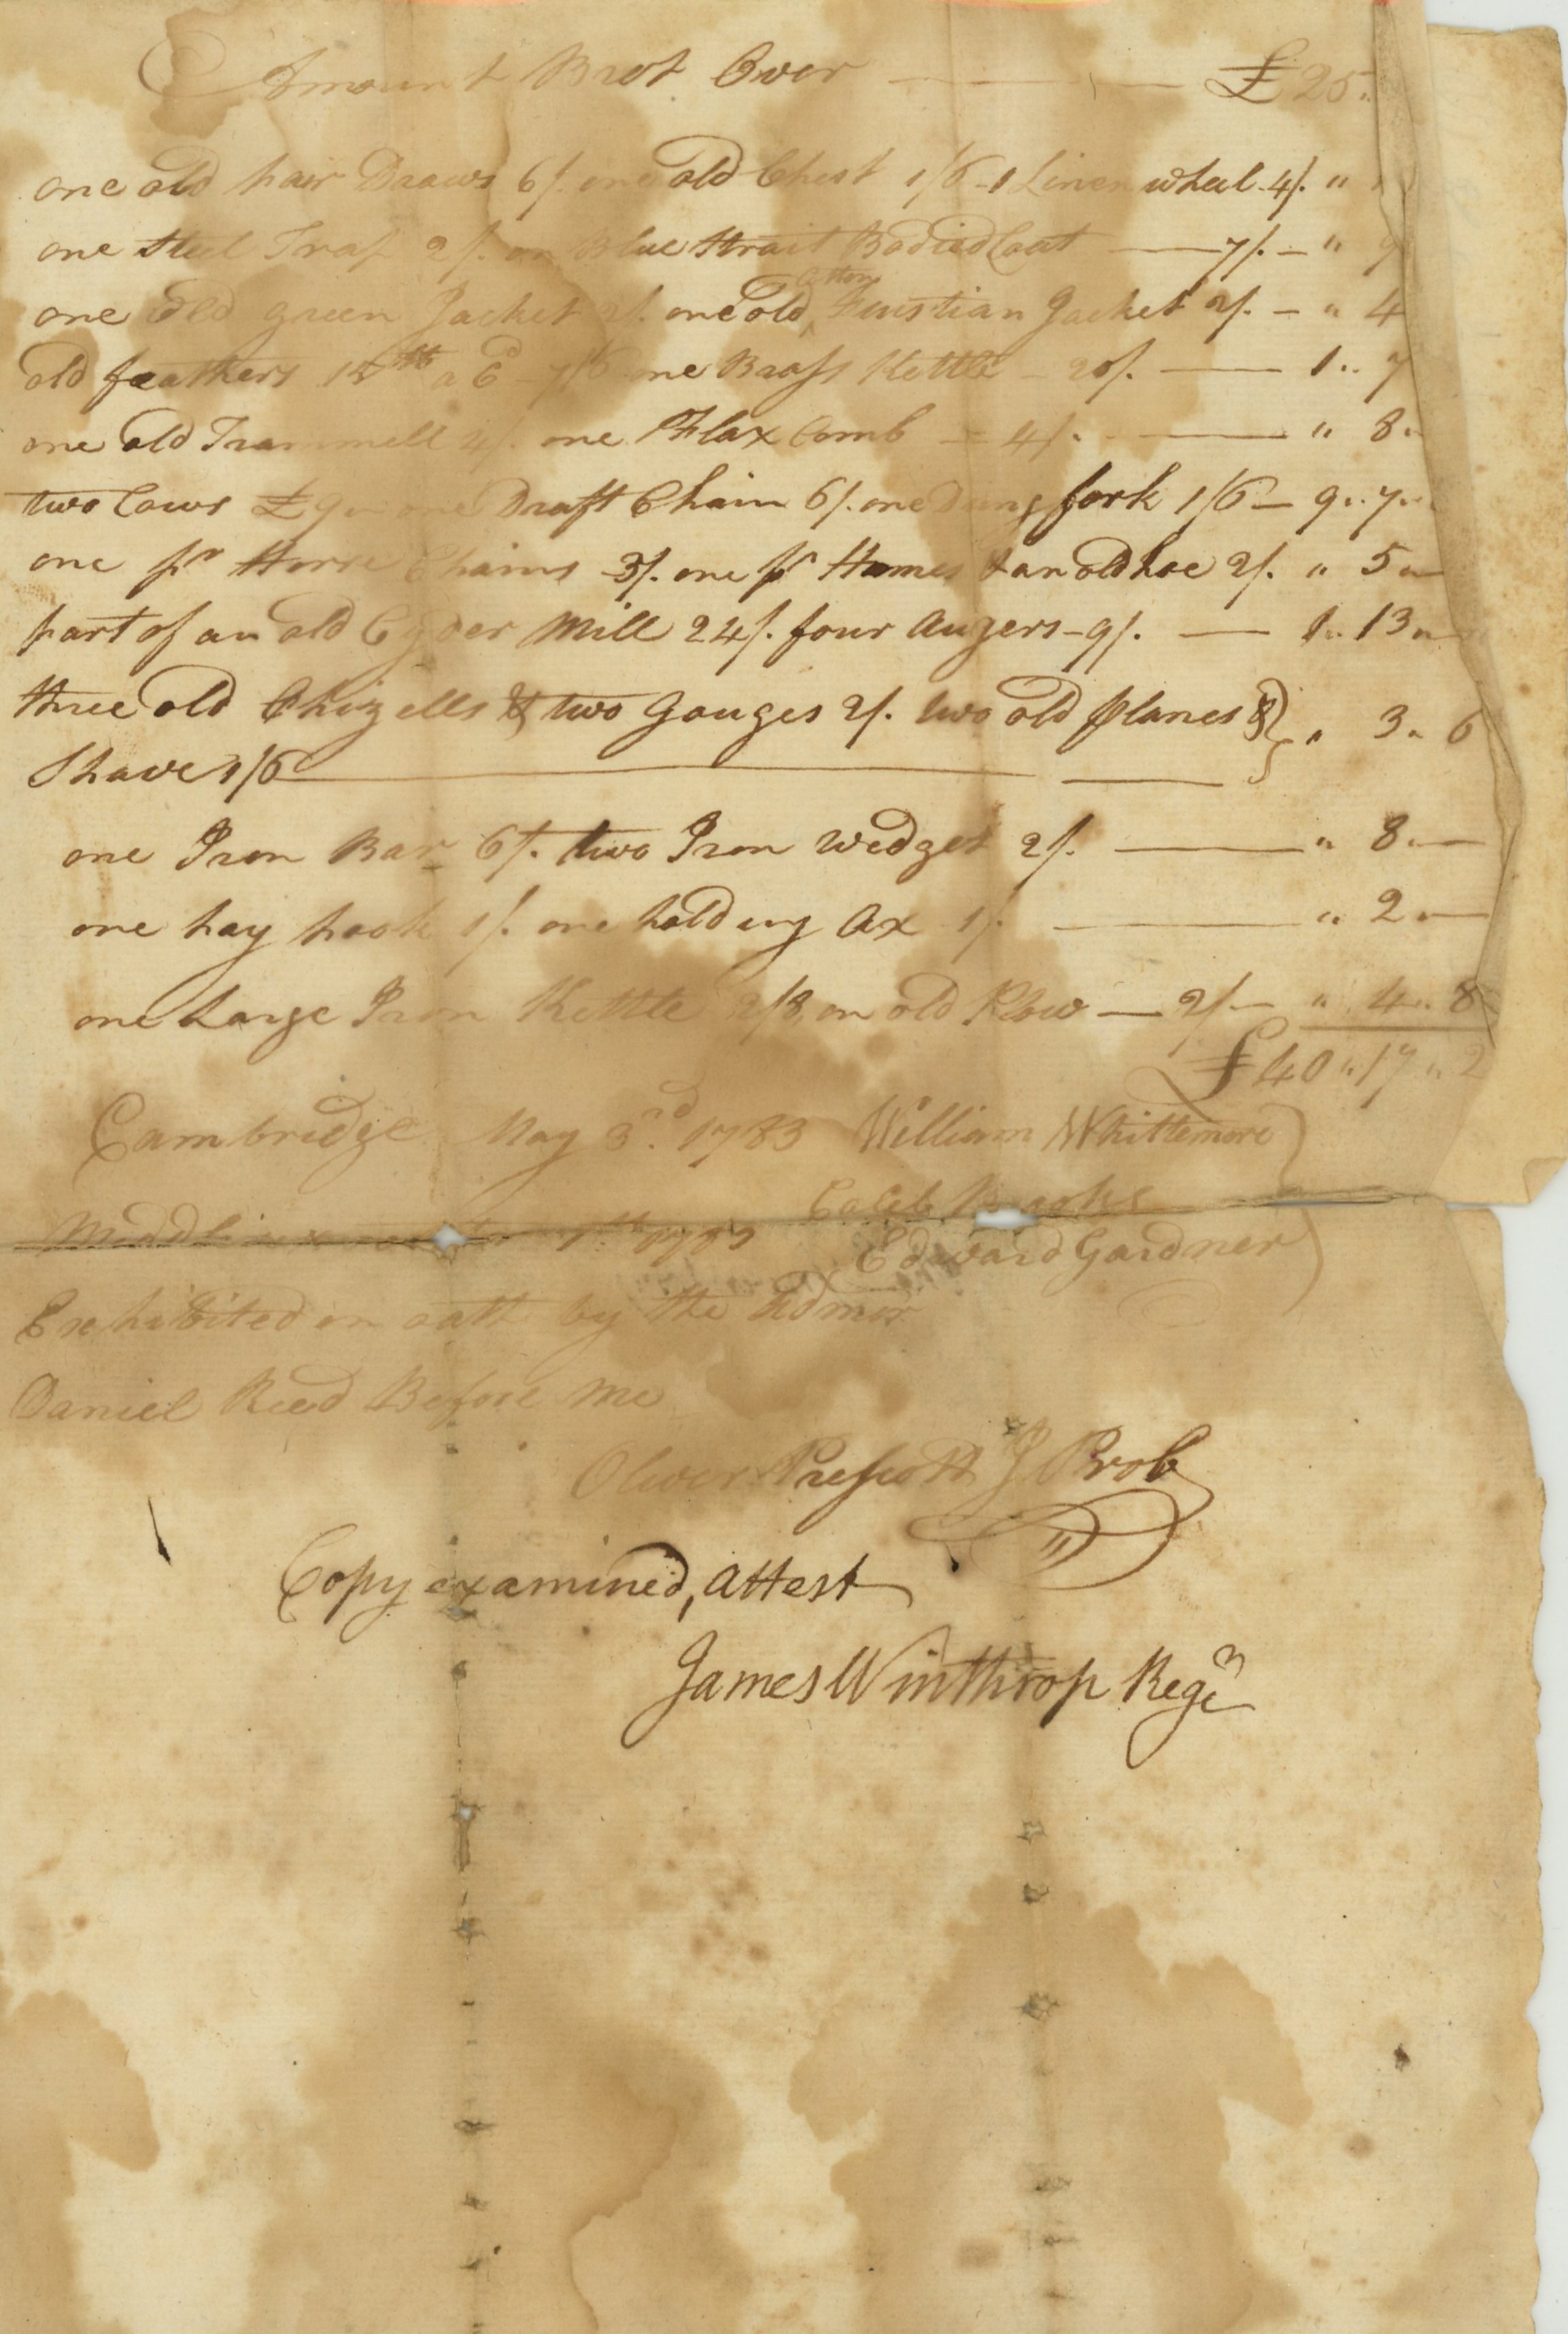 Amount Brot Over — £25"
one old hair Draws 6/. one old Chest 1/6 - 1 Linen wheel - 4/. "
one Steel Trap 2/. on Blue Strait Bodied Coat — 7/. - " 9
one Old green Jacket 2/. one old Cotton Feustian Jacket 2/. - " 4
old feathers 15 lb a 6d - 7/6 one Brass Kettle - 20/. — 1 " 7
one old Trammell 4/. one Flax Comb - 4/. — " 8 "
two Cows £9 " one Draft Chain 6/. one Dung fork 1/6 — 9 " 7 "
one pr Horse Chains 3/. one pr Hames & an old hoe 2/. " 5 "
part of an old Cyder Mill 24/. four Augers - 9/. — 1 " 13 "
three old Chizells & two Gouges 2/. two old planes & } " 3 " 6
Shave 1/6
one Iron Bar 6/. two Iron Wedges 2/. — " 8 "
one hay hook 1/. one holding Ax 1/. — " 2 "
one Large Iron Kettle 2/8, on old Plow — 2/- " 4 " 8
£40 " 17 " 2
Cambridge May 3rd. 1783 William Whittemore
Caleb Brooks
Middlesex 1783 Edward Gardner
Exhibited on oath by the Admor
Daniel Reed Before Me
Oliver Prescott J Prob
Copy examined, attest
James Winthrop Regr